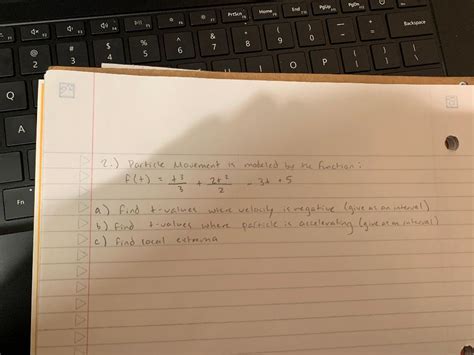 PrtScn Home End PgUp PgDn
F4 F5 F6 F7 F8 F9
Backspace
@ # $ % ^ & * (
2 3 4 5 6 7 8 9
Q I O P
A
Fn
2.) Particle Movement is modeled by the function:
f(t) = t³/3 + 2t²/2 - 3t + 5
a) find t-values where velocity is negative (give as an interval)
b) find t-values where particle is accelerating (give as an interval)
c) find local extrema